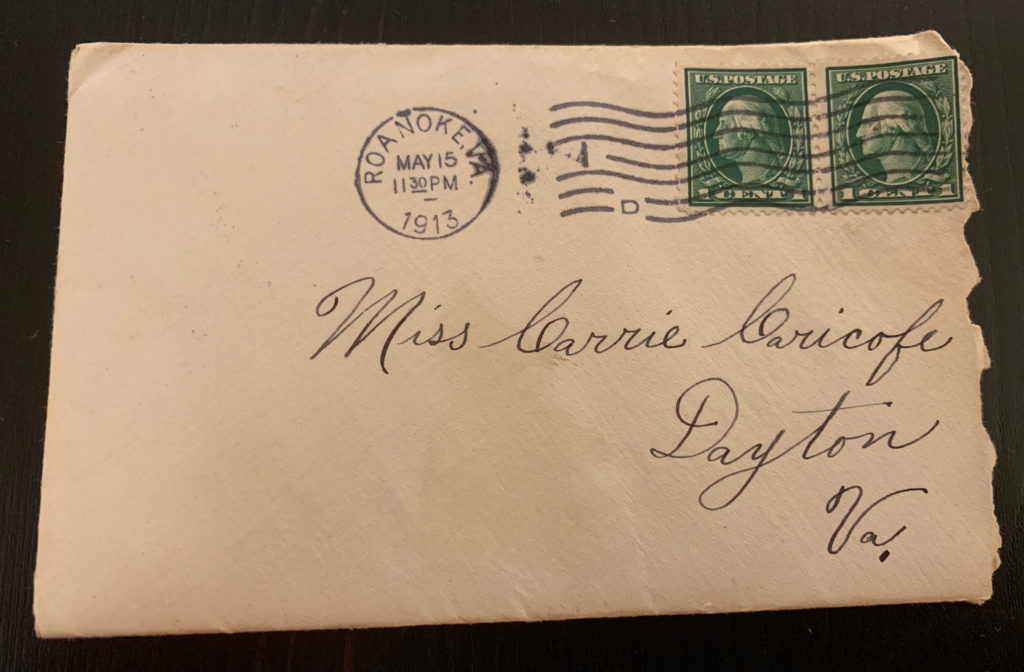 ROANOKE, VA
MAY 15
11 30 PM
1913
D
U.S. POSTAGE
1 CENT 1
U.S. POSTAGE
1 CENT 1
Miss Carrie Caricofe
Dayton
Va.